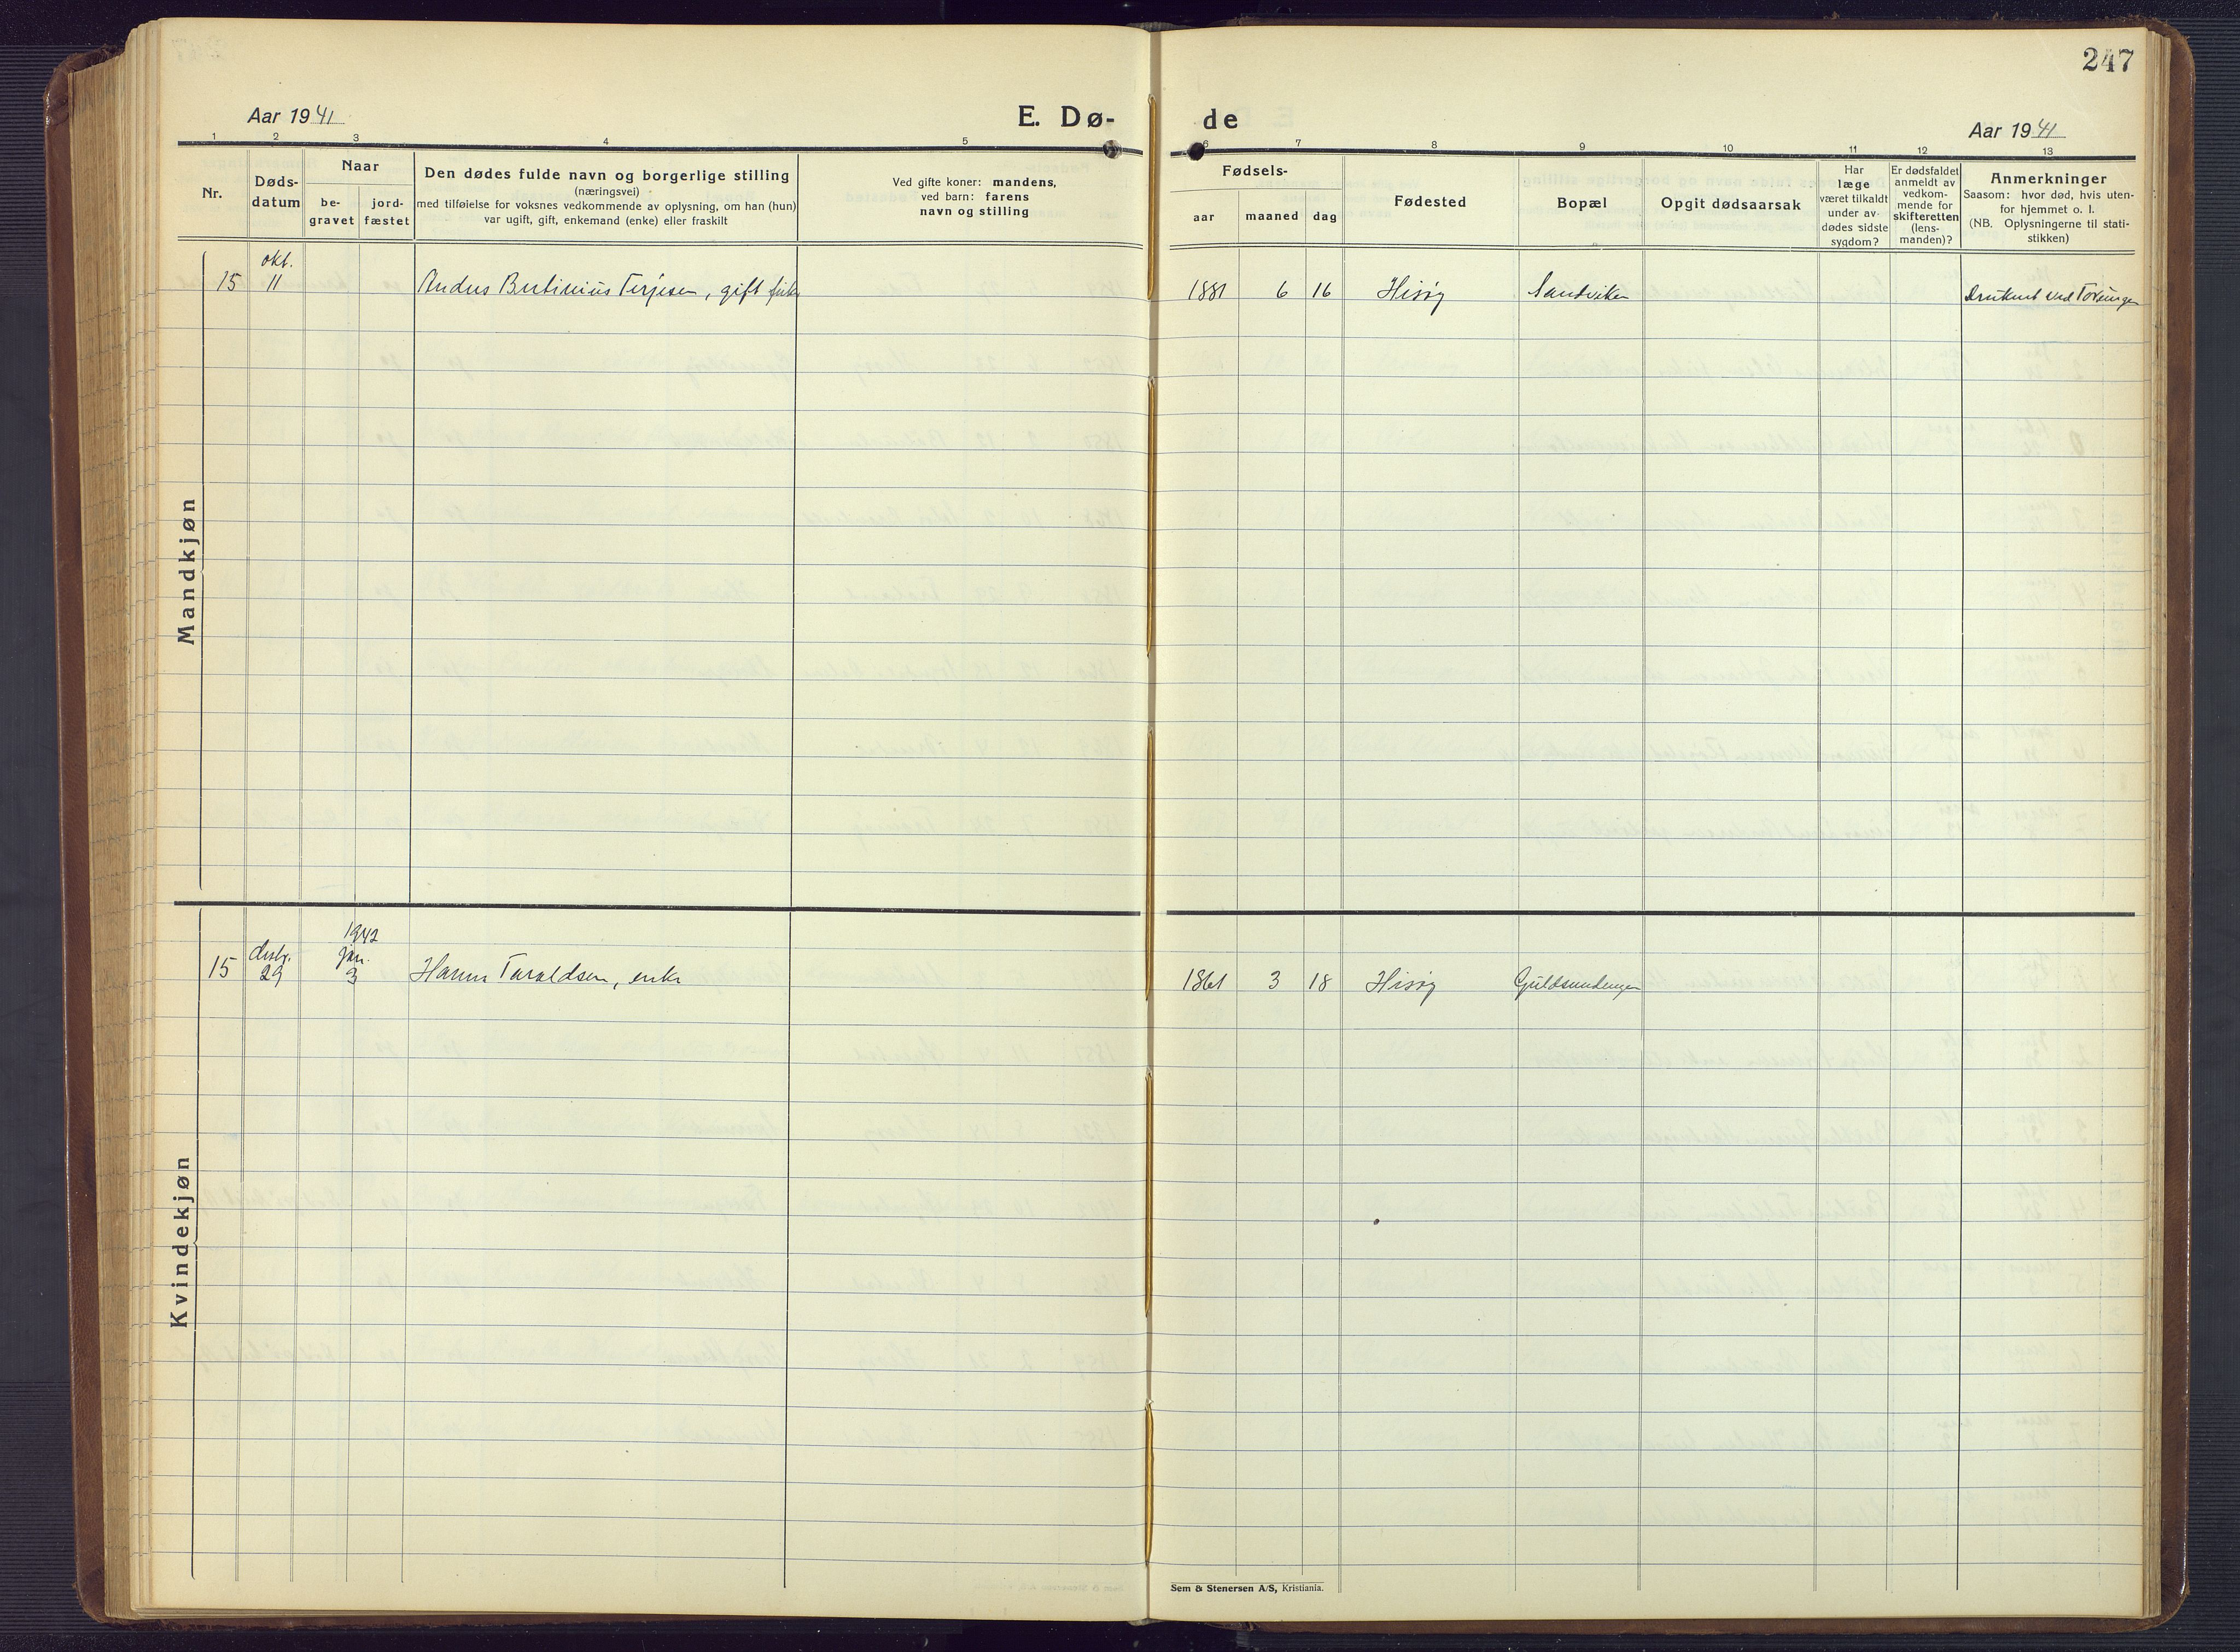 247
Aar 1941
E. Dø-
de
Aar 1941
1 2 3 4 5 6 7 8 9 10 11 12 13
Nr.
Døds-
datum
Naar
be-
gravet
jord-
fæstet
Den dødes fulde navn og borgerlige stilling
(næringsvei)
med tilføielse for voksnes vedkommende av oplysning, om han (hun)
var ugift, gift, enkemand (enke) eller fraskilt
Ved gifte koner: mandens,
ved barn: farens
navn og stilling
Fødsels-
aar maaned dag
Fødested
Bopæl
Opgit dødsaarsak
Har
læge
været tilkaldt
under av-
dødes sidste
sygdom?
Er dødsfaldet
anmeldt av
vedkom-
mende for
skifteretten
(lens-
manden)?
Anmerkninger
Saasom: hvor død, hvis uten-
for hjemmet o. l.
(NB. Oplysningerne til stati-
stikken)
Mandkjøn
okt.
15 11 Terjesen, gift 1881 6 16 Hisøy Sandviken Druknet ved Torungen
Kvindekjøn
1942
desbr. jan.
15 29 3 Hanna Taraldsen, enke 1861 3 18 Hisøy Guldsmedengen
Sem & Stenersen A/S, Kristiania.